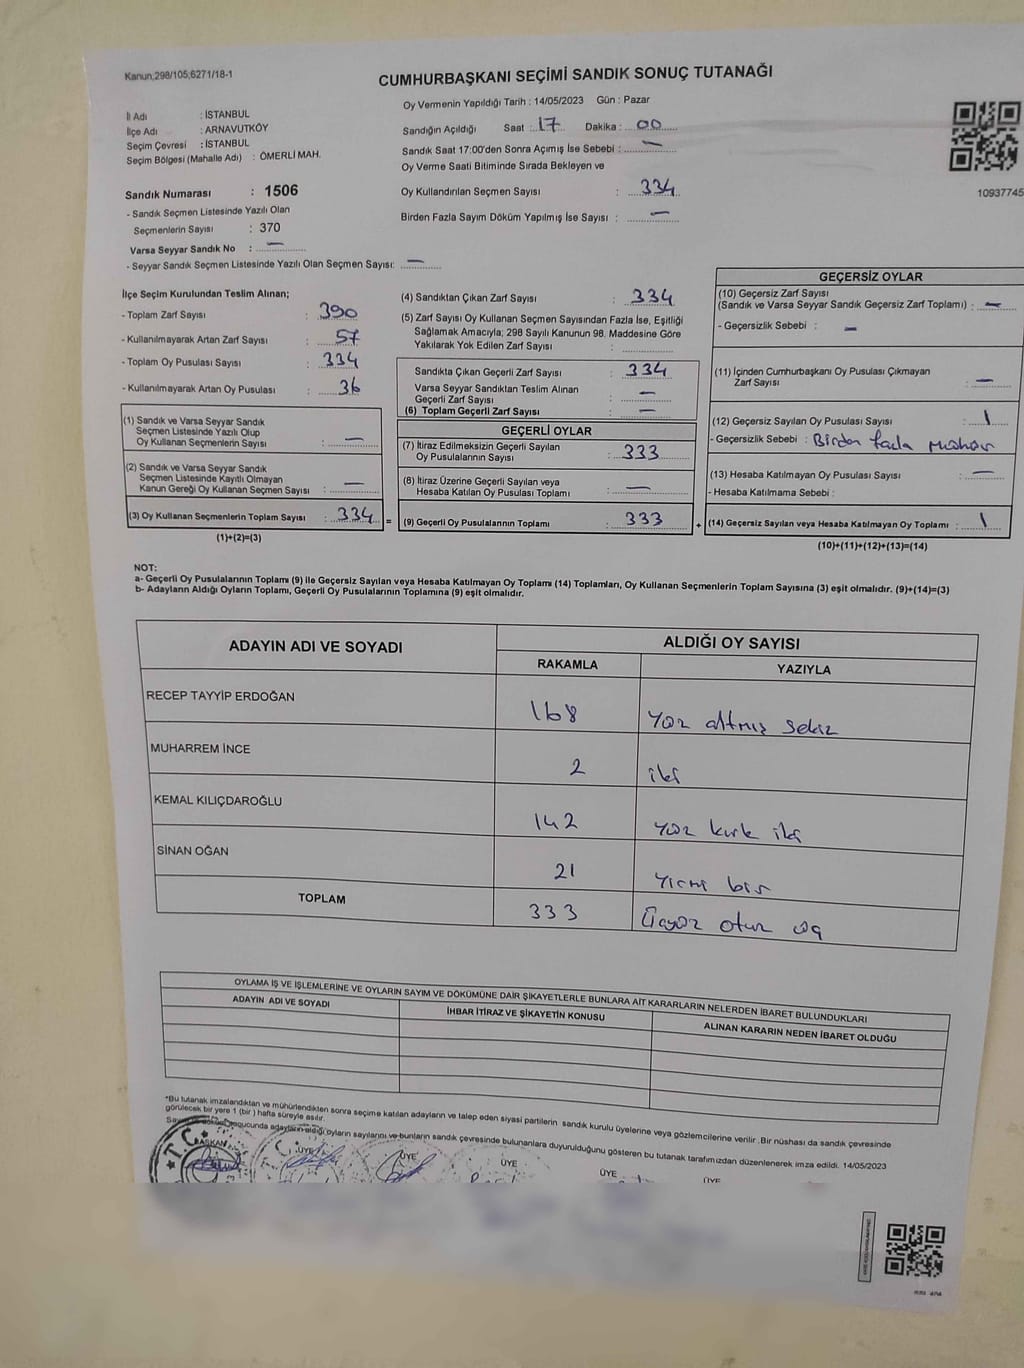 Kanun;298/105;6271/18-1
CUMHURBAŞKANI SEÇİMİ SANDIK SONUÇ TUTANAĞI
İl Adı : İSTANBUL
İlçe Adı : ARNAVUTKÖY
Seçim Çevresi : İSTANBUL
Seçim Bölgesi (Mahalle Adı) : ÖMERLİ MAH.
Sandık Numarası : 1506
- Sandık Seçmen Listesinde Yazılı Olan
Seçmenlerin Sayısı : 370
Varsa Seyyar Sandık No : —
- Seyyar Sandık Seçmen Listesinde Yazılı Olan Seçmen Sayısı: —
Oy Vermenin Yapıldığı Tarih : 14/05/2023 Gün : Pazar
Sandığın Açıldığı Saat : 17 Dakika : 00
Sandık Saat 17:00'den Sonra Açımış İse Sebebi : —
Oy Verme Saati Bitiminde Sırada Bekleyen ve
Oy Kullandırılan Seçmen Sayısı : 334
Birden Fazla Sayım Döküm Yapılmış İse Sayısı : —
10937745
İlçe Seçim Kurulundan Teslim Alınan;
- Toplam Zarf Sayısı : 390
- Kullanılmayarak Artan Zarf Sayısı : 57
- Toplam Oy Pusulası Sayısı : 334
- Kullanılmayarak Artan Oy Pusulası : 36
(1) Sandık ve Varsa Seyyar Sandık
Seçmen Listesinde Yazılı Olup
Oy Kullanan Seçmenlerin Sayısı : —
(2) Sandık ve Varsa Seyyar Sandık
Seçmen Listesinde Kayıtlı Olmayan
Kanun Gereği Oy Kullanan Seçmen Sayısı : —
(3) Oy Kullanan Seçmenlerin Toplam Sayısı : 334 =
(1)+(2)=(3)
(4) Sandıktan Çıkan Zarf Sayısı : 334
(5) Zarf Sayısı Oy Kullanan Seçmen Sayısından Fazla İse, Eşitliği
Sağlamak Amacıyla; 298 Sayılı Kanunun 98. Maddesine Göre
Yakılarak Yok Edilen Zarf Sayısı :
Sandıkta Çıkan Geçerli Zarf Sayısı : 334
Varsa Seyyar Sandıktan Teslim Alınan
Geçerli Zarf Sayısı : —
(6) Toplam Geçerli Zarf Sayısı : —
GEÇERLİ OYLAR
(7) İtiraz Edilmeksizin Geçerli Sayılan
Oy Pusulalarının Sayısı : 333
(8) İtiraz Üzerine Geçerli Sayılan veya
Hesaba Katılan Oy Pusulası Toplamı : —
(9) Geçerli Oy Pusulalarının Toplamı : 333 +
GEÇERSİZ OYLAR
(10) Geçersiz Zarf Sayısı
(Sandık ve Varsa Seyyar Sandık Geçersiz Zarf Toplamı) : —
- Geçersizlik Sebebi : —
(11) İçinden Cumhurbaşkanı Oy Pusulası Çıkmayan
Zarf Sayısı : —
(12) Geçersiz Sayılan Oy Pusulası Sayısı : 1
- Geçersizlik Sebebi : Birden fazla mühür
(13) Hesaba Katılmayan Oy Pusulası Sayısı : —
- Hesaba Katılmama Sebebi :
(14) Geçersiz Sayılan veya Hesaba Katılmayan Oy Toplamı : 1
(10)+(11)+(12)+(13)=(14)
NOT:
a- Geçerli Oy Pusulalarının Toplamı (9) ile Geçersiz Sayılan veya Hesaba Katılmayan Oy Toplamı (14) Toplamları, Oy Kullanan Seçmenlerin Toplam Sayısına (3) eşit olmalıdır. (9)+(14)=(3)
b- Adayların Aldığı Oyların Toplamı, Geçerli Oy Pusulalarının Toplamına (9) eşit olmalıdır.
ADAYIN ADI VE SOYADI ALDIĞI OY SAYISI
RAKAMLA YAZIYLA
RECEP TAYYİP ERDOĞAN 168 Yüz altmış sekiz
MUHARREM İNCE 2 iki
KEMAL KILIÇDAROĞLU 142 yüz kırk iki
SİNAN OĞAN 21 yirmi bir
TOPLAM 333 Üçyüz otuz üç
OYLAMA İŞ VE İŞLEMLERİNE VE OYLARIN SAYIM VE DÖKÜMÜNE DAİR ŞİKAYETLERLE BUNLARA AİT KARARLARIN NELERDEN İBARET BULUNDUKLARI
ADAYIN ADI VE SOYADI İHBAR İTİRAZ VE ŞİKAYETİN KONUSU ALINAN KARARIN NEDEN İBARET OLDUĞU
*Bu tutanak imzalandıktan ve mühürlendikten sonra seçime katılan adayların ve talep eden siyasi partilerin sandık kurulu üyelerine veya gözlemcilerine verilir. Bir nüshası da sandık çevresinde
görülecek bir yere 1 (bir) hafta süreyle asılır.
adayların aldığı oyların sayılarını ve bunların sandık çevresinde bulunanlara duyurulduğunu gösteren bu tutanak tarafımızdan düzenlenerek imza edildi. 14/05/2023
T.C. BAŞKAN ÜYE ÜYE ÜYE ÜYE ÜYE